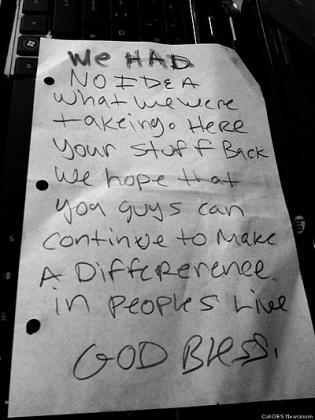 We HAD
NO IDEA
What we were
takeing. Here
your stuff Back
We hope that
you guys can
continue to Make
A Difference.
in peoples Live
GOD Bless.
Cal OES Newsroom